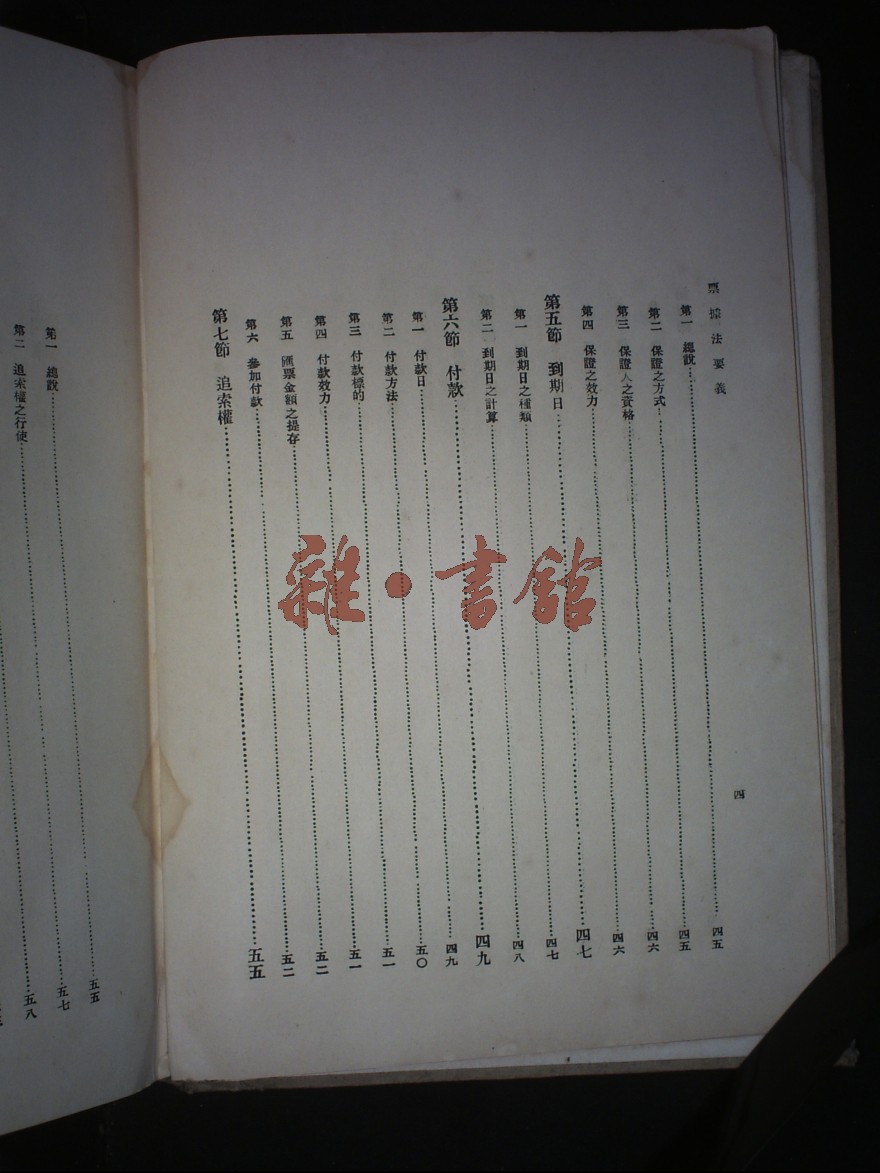 票據法要義
四
第一 總說……四五
第二 保證之方式……四五
第三 保證人之資格……四六
第四 保證之效力……四六
第五節 到期日……四七
第一 到期日之種類……四七
第二 到期日之計算……四八
第六節 付款……四九
第一 付款日……四九
第二 付款方法……五〇
第三 付款標的……五一
第四 付款效力……五一
第五 匯票金額之提存……五二
第六 參加付款……五二
第七節 追索權……五五
第一 總說……五五
第二 追索權之行使……五七
五八
雜·書館